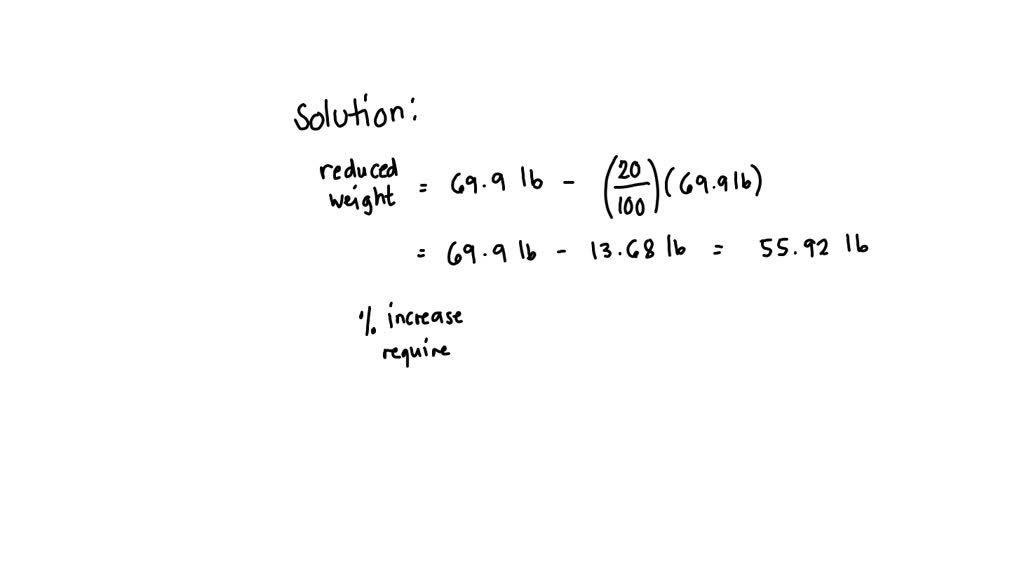 Solution:
reduced weight = 69.9 lb - (20/100)(69.9 lb)
= 69.9 lb - 13.68 lb = 55.92 lb
% increase
require